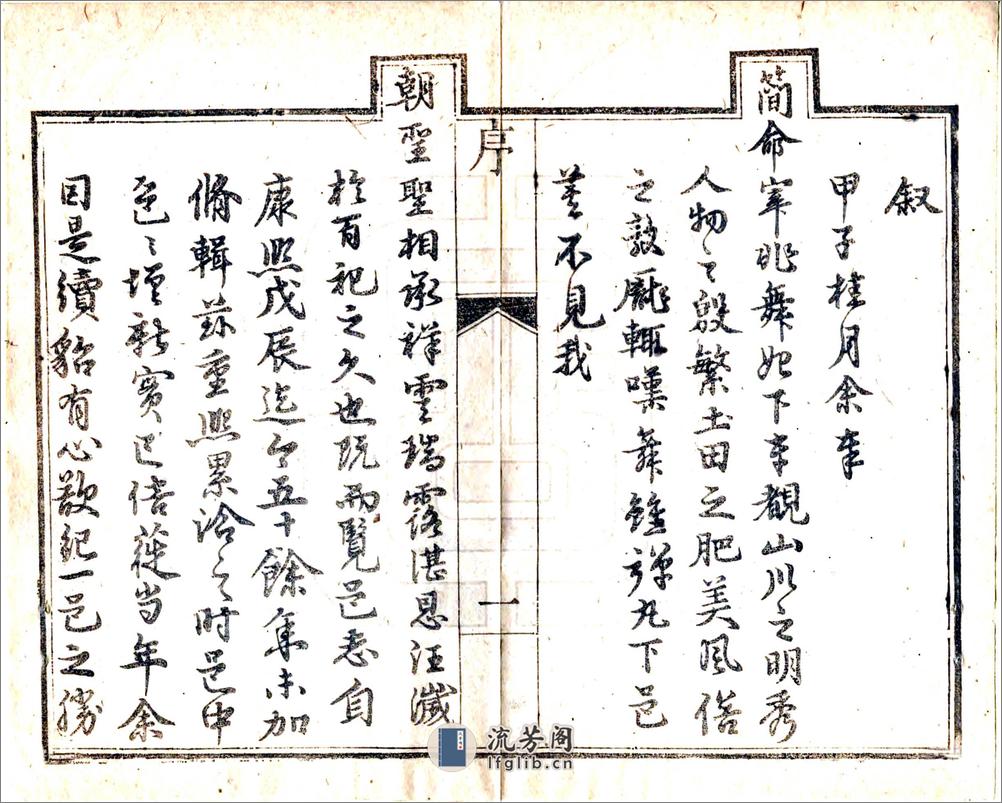 叙
甲子桂月余奉
簡命宰兆舞始下車觀山川之明秀
人物之殷繁土田之肥美風俗
之敦龐輒嘆舞雖彈丸下邑
莫不見我
序
一
朝聖聖相承祥雲瑞露湛恩汪濊
於百祀之久也既而覽邑志自
康熙戊辰迄今五十餘年未加
脩輯茲重熙累洽之時邑中
邑之增新實已倍蓰當年余
因是續貂有心欲紀一邑之勝
流芳阁
lfglib.cn